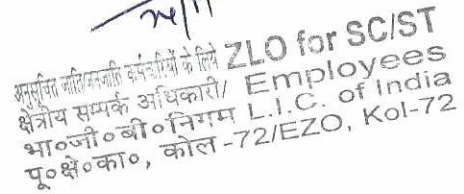 24/11
अनुसूचित जाति/जनजाति कर्मचारियों के लिये ZLO for SC/ST
क्षेत्रीय सम्पर्क अधिकारी/ Employees
भा०जी०बी०निगम L.I.C. of India
पू०क्षे०का०, कोल-72/EZO, Kol-72